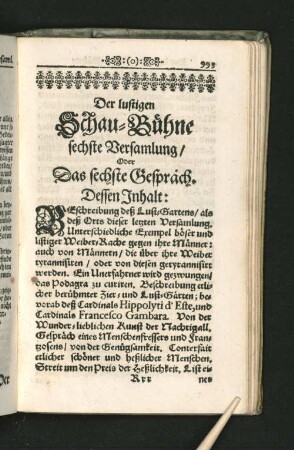 :(o):
993
Der lustigen
Schau-Bühne
sechste Versamlung/
Oder
Das sechste Gespräch.
Dessen Inhalt:
BEschreibung deß Lust-Gartens/ als
deß Orts dieser letzten Versamlung.
Unterschiedliche Exempel böser und
listiger Weiber-Rache gegen ihre Männer:
auch von Männern/ die über ihre Weiber
tyrannisiren/ oder von diesen getyrannisirt
werden. Ein Unerfahrner wird gezwungen/
das Podagra zu curiren. Beschreibung etli-
cher berühmter Zier- und Lust-Gärten; be-
vorab deß Cardinals Hippolyti d'Este, und
Cardinals Francesco Gambara. Von der
Wunder-lieblichen Kunst der Nachtigall.
Gespräch eines Menschenfressers und Fran-
zosens/ von der Genügsamkeit. Conterfait
etlicher schöner und heßlicher Menschen.
Streit um den Preis der Heßlichkeit. List ei-
Rrr
ner